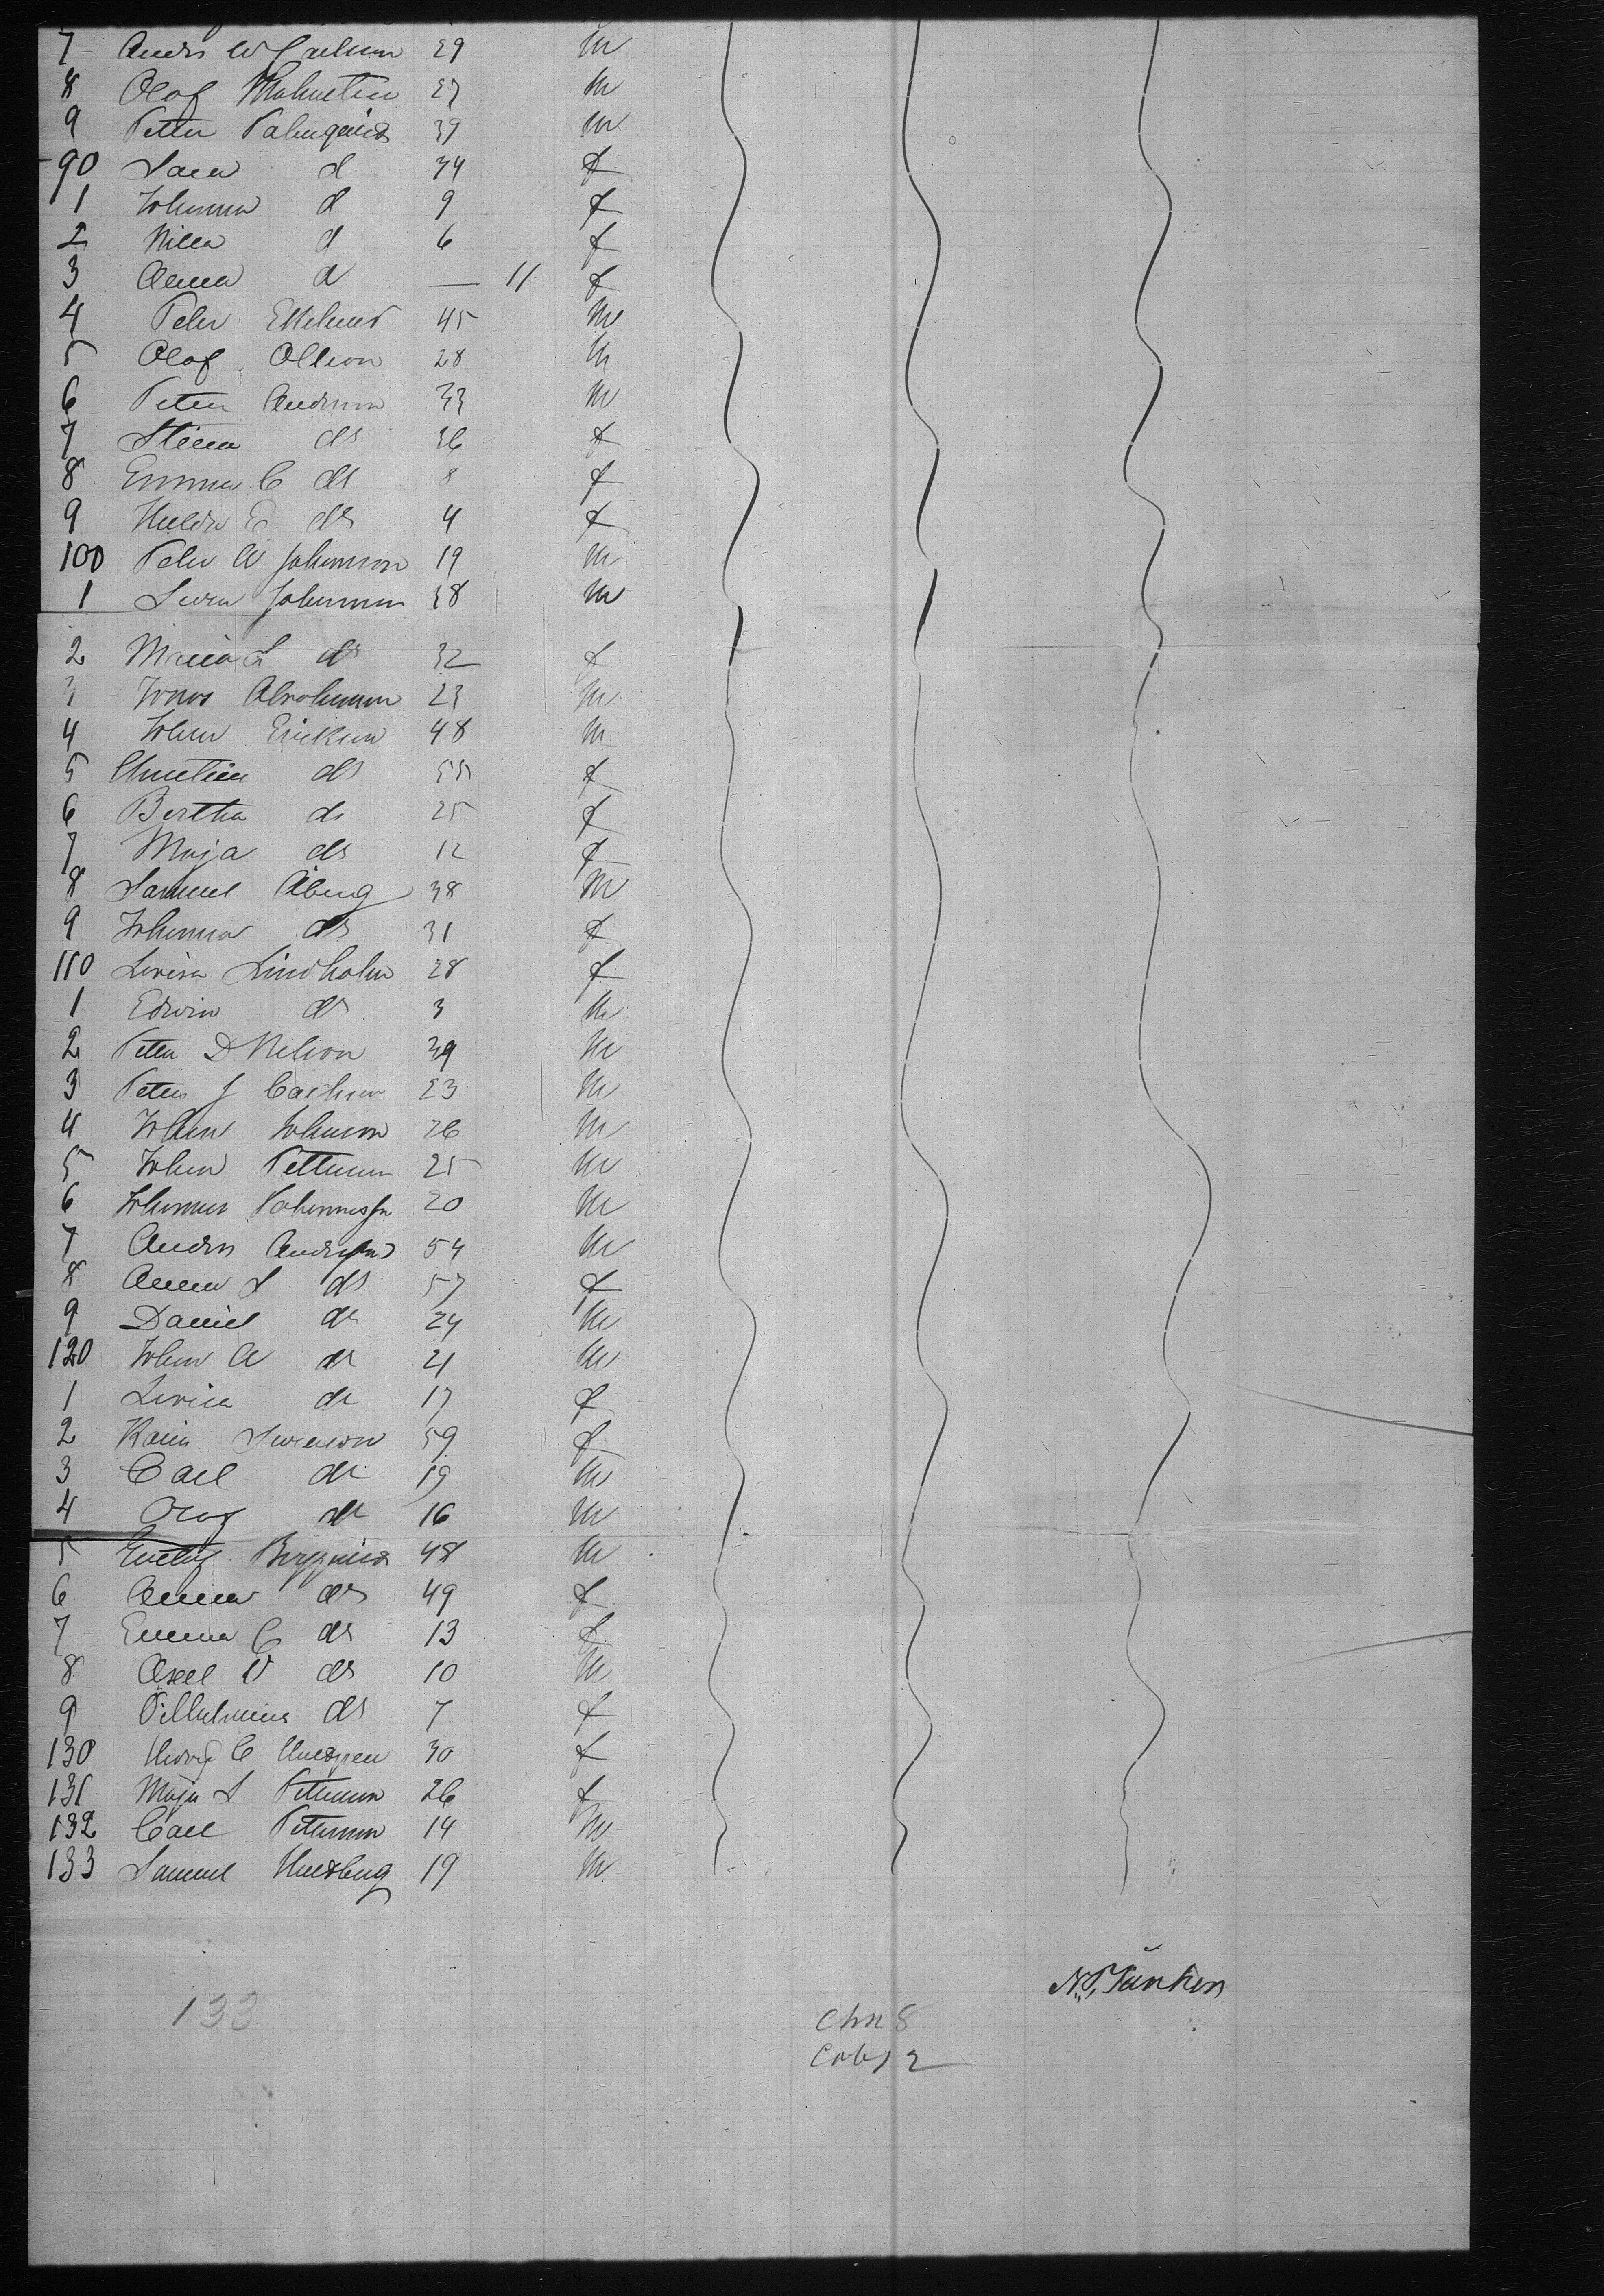 7 Andrs W Carlson 29 m
8 Olof Malmsten 27 m
9 Petter Palmquist 39 m
90 Sara d 34 f
1 Johanna d 9 f
2 Nilla d 6 f
3 Anna d — 11 f
4 Peter Ekelund 45 m
5 Olof Ollson 28 m
6 Peter Anderson 33 m
7 Stina do 36 f
8 Emma C do 8 f
9 Hulda E do 4 f
100 Peter A Johanson 19 m
1 Sven Johanson 38 m
2 Maria L do 32 f
3 Jonas Abrahamson 23 m
4 Johan Erickson 48 m
5 Christina do 55 f
6 Bertha do 25 f
7 Maja do 12 f
8 Samuel Åberg 38 m
9 Johanna do 31 f
110 Lovisa Lindholm 28 f
1 Edvin do 3 m
2 Peter D Nelson 39 m
3 Peter J Carlson 23 m
4 Johan Johanson 26 m
5 Johan Petterson 25 m
6 Johannes Johannesson 20 m
7 Andrs Anderson 54 m
8 Anna L do 57 f
9 Daniel do 24 m
120 Johan A do 21 m
1 Lovisa do 17 f
2 Karin Swenson 59 f
3 Carl do 19 m
4 Olof do 16 m
5 Gustaf Bergquist 48 m
6 Anna do 49 f
7 Emma C do 13 f
8 Axel V do 10 m
9 Vilhelmina do 7 f
130 C 30 f
131 Maja S Petterson 26 f
132 Carl Petterson 14 m
133 Samuel 19 m
133
Chn 8
2